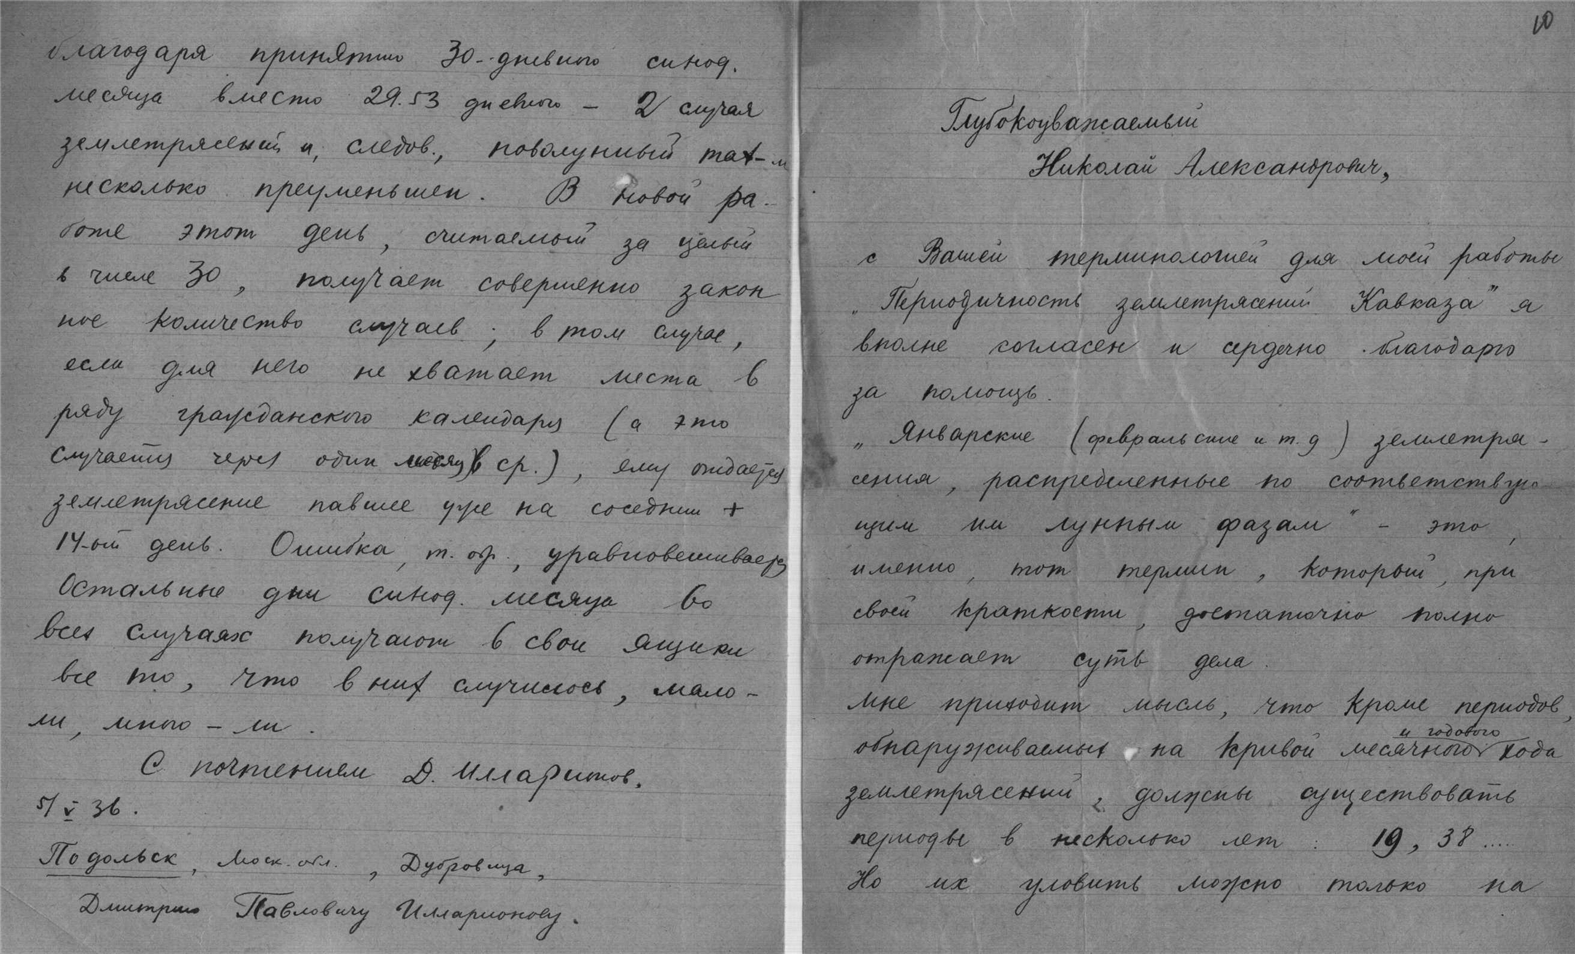 благодаря принятию 30-дневного синод.
месяца вместо 29.53 дневного – 2 случая
землетрясений и, следов., новолунный max-м
несколько преуменьшен. В новой ра-
боте этот день, считаемый за целый
в числе 30, получает совершенно закон
ное количество случаев; в том случае,
если для него не хватает места в
ряду гражданского календаря (а это
случается через один месяц в ср.), ему отдается
землетрясение павшее уже на соседний +
14-ый день. Ошибка, т. обр., уравновешивается
Остальные дни синод. месяца во
всех случаях получают в свои ящики
все то, что в них случилось, мало-
ли, много – ли.
С почтением Д. Илларионов.
5/V 36.
Подольск, Моск. обл., Дубровица,
Дмитрию Павловичу Илларионову.
10
Глубокоуважаемый
Николай Александрович,
с Вашей терминологией для моей работы
„Периодичность землетрясений Кавказа" я
вполне согласен и сердечно благодарю
за помощь.
„Январские (февральские и т.д) землетря-
сения, распределенные по соответствую-
щим им лунным фазам" – это,
именно, тот термин, который, при
своей краткости, достаточно полно
отражает суть дела.
Мне приходит мысль, что кроме периодов,
и годового
обнаруживаемых на кривой месячного хода
землетрясений, должны существовать
периоды в несколько лет: 19, 38....
Но их уловить можно только на